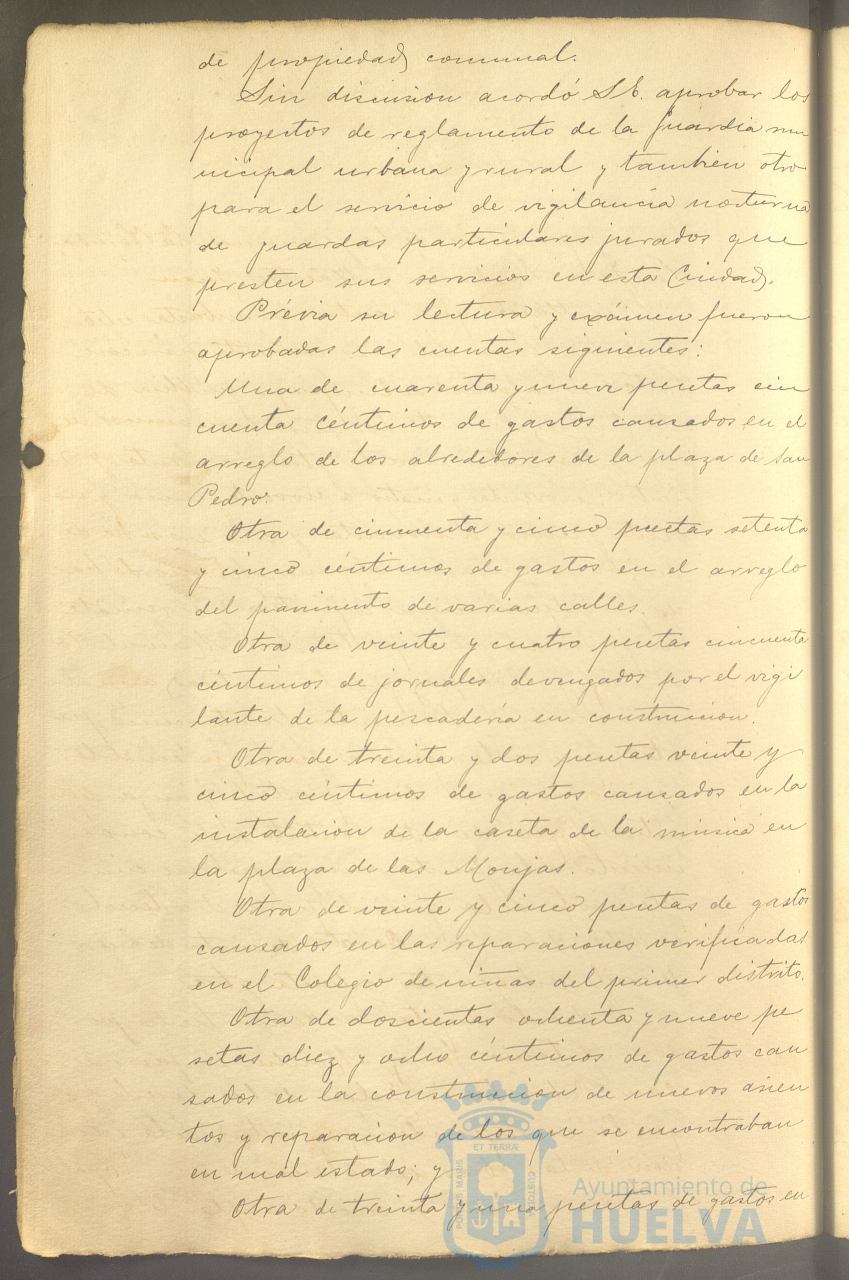 de propiedad comunal.
Sin discusion acordó S.E. aprobar los
proyectos de reglamento de la guardia mu
nicipal urbana y rural y tambien otro
para el servicio de vigilancia nocturna
de guardas particulares jurados que
presten sus servicios en esta Ciudad.
Prévia su lectura y exámen fueron
aprobadas las cuentas siguientes:
Una de cuarenta y nueve pesetas cin
cuenta céntimos de gastos causados en el
arreglo de los alrededores de la plaza de San
Pedro.
Otra de cincuenta y cinco pesetas setenta
y cinco céntimos de gastos en el arreglo
del pavimento de varias calles.
Otra de veinte y cuatro pesetas cincuenta
céntimos de jornales devengados por el vigi
lante de la pescadería en construccion.
Otra de treinta y dos pesetas veinte y
cinco céntimos de gastos causados en la
instalacion de la caseta de la música en
la plaza de las Monjas.
Otra de veinte y cinco pesetas de gastos
causados en las reparaciones verificadas
en el Colegio de niñas del primer distrito.
Otra de doscientas ochenta y nueve pe
setas diez y ocho céntimos de gastos cau
sados en la construccion de nuevos asien
tos y reparacion de los que se encontraban
en mal estado; y
Otra de treinta y una pesetas de gastos en
PORTUS MARIS ET TERRÆ CUSTODIA
Ayuntamiento de
HUELVA